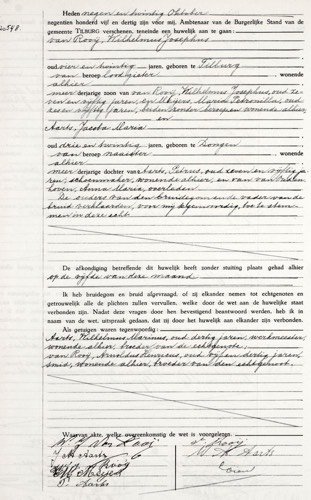 Heden negen en twintig Oktober
negentien honderd vijf en dertig zijn voor mij, Ambtenaar van de Burgerlijke Stand van de
gemeente TILBURG verschenen, teneinde een huwelijk aan te gaan:
van Rooij, Wilhelmus Josephus
oud vier en twintig jaren, geboren te Tilburg
van beroep loodgieter wonende
alhier
meerderjarige zoon van van Rooij, Wilhelmus Josephus, oud ze-
ven en vijftig jaren, en Meyers, Maria Petronella, oud
zes en vijftig jaren, beiden zonder beroep en wonende alhier
en
Aarts, Jacoba Maria
oud drie en twintig jaren, geboren te Dongen
van beroep naaister wonende
alhier
meerderjarige dochter van Aarts, Petrus, oud zeven en vijftig ja-
ren, schoenmaker, wonende alhier, en van van
hoven, Anna Maria, overleden.
De ouders van den bruidegom en de vader van de
bruid verklaarden, voor mij tegenwoordig, toe te stem-
men in deze echt.
De afkondiging betreffende dit huwelijk heeft zonder stuiting plaats gehad alhier
op de vijfde van deze maand.
Ik heb bruidegom en bruid afgevraagd, of zij elkander nemen tot echtgenoten en
getrouwelijk alle de plichten zullen vervullen, welke door de wet aan de huwelijkse staat
verbonden zijn. Nadat deze vragen door hen bevestigend beantwoord werden, heb ik in
naam van de wet, uitspraak gedaan, dat zij door het huwelijk aan elkander zijn verbonden.
Als getuigen waren tegenwoordig:
Aarts, Wilhelmus Marinus, oud dertig jaren, werkmeester,
wonende alhier, broeder van de echtgenote.
van Rooij, Arnoldus Henricus, oud en dertig jaren,
smid, wonende alhier, broeder van den echtgenoot.
Waarvan akte, welke overeenkomstig de wet is voorgelezen.
W. J. van Rooij
J. M. Aarts
W. M. Aarts
Rooij
P. Aarts